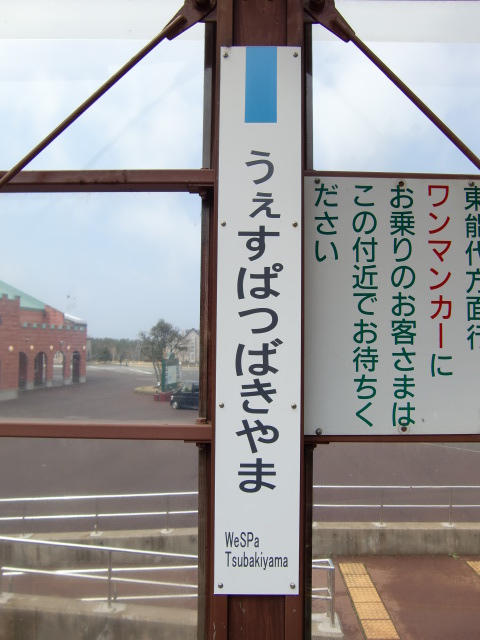 うぇすぱつばきやま
WeSPa
Tsubakiyama
東能代方面行
ワンマンカーに
お乗りのお客さまは
この付近でお待ちく
ださい